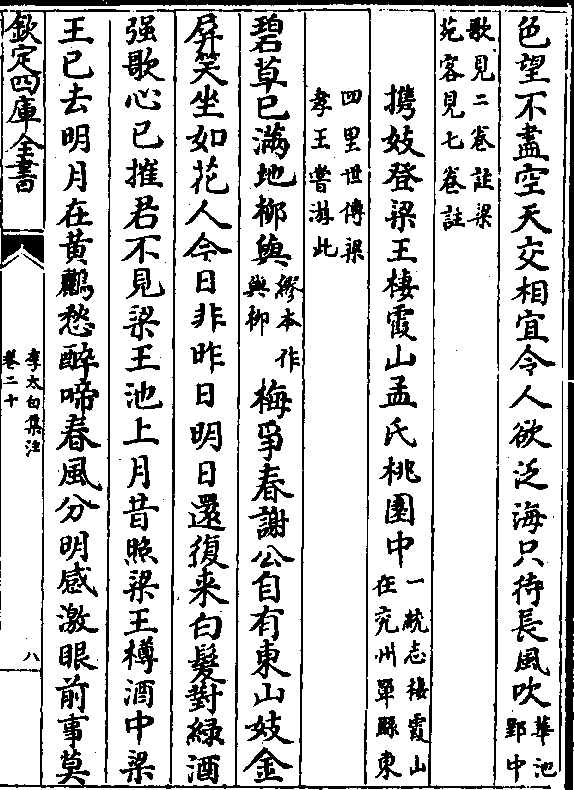 色望不盡空天交相宜令人欲泛海只待長風吹華池
鄴中
歌見二卷註梁
苑客見七卷註
攜妓登梁王棲霞山孟氏桃園中一統志棲霞山
在兖州單縣東
四里世傳梁
孝王嘗游此
碧草已滿地栁與繆本作
與栁梅爭春謝公自有東山妓金
屏笑坐如花人今日非昨日明日還復来白髮對緑酒
强歌心已摧君不見梁王池上月昔照梁王樽酒中梁
王已去明月在黄鸝愁醉啼春風分明感激眼前事莫
欽定四庫全書
李太白集注
卷二十
八